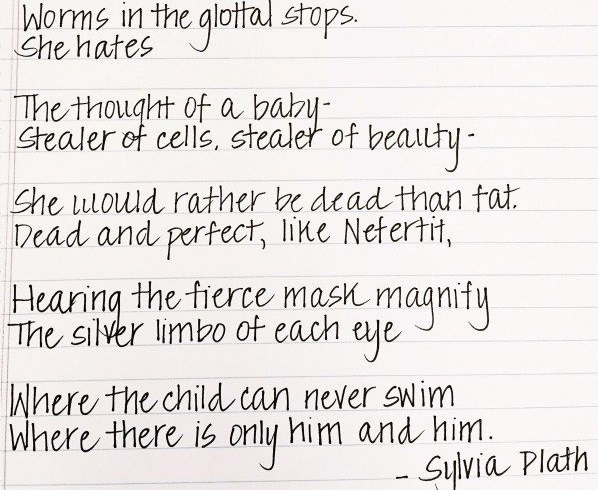 Worms in the glottal stops.
She hates
The thought of a baby-
Stealer of cells, stealer of beauty-
She would rather be dead than fat.
Dead and perfect, like Nefertit,
Hearing the fierce mask magnify
The silver limbo of each eye
Where the child can never swim
Where there is only him and him.
- Sylvia Plath